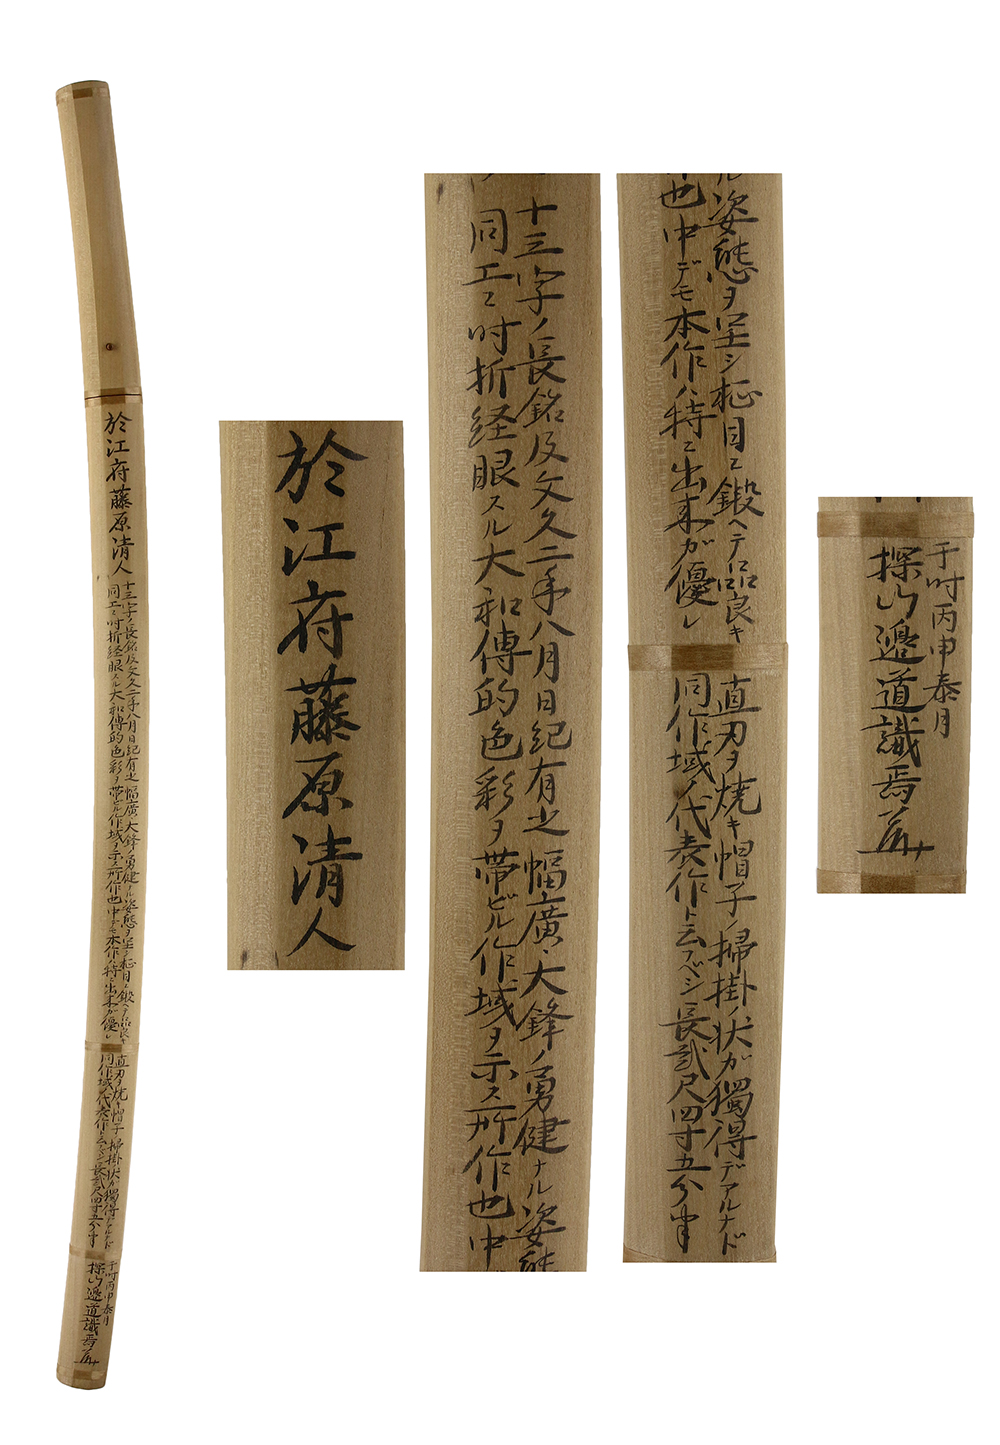 於江府藤原清人
十三字ノ長銘及文久二年八月日紀有之幅廣、大鋒ノ勇健ナル姿態ヲ呈シ柾目ニ鍛ヘテ品良キ
同工ニ时折経眼スル大和傳的色彩ヲ帯ビル作域ヲ示ス所作也中デモ本作ハ特ニ出来ガ優レ
直刃ヲ焼キ帽子ノ掃掛ノ状ガ獨得デアルナド
同作域ノ代表作ト云フベシ長貳尺四寸五分半
于时丙申泰月
探山邉道識焉
於江府藤原清人
十三字ノ長銘及文久二年八月日紀有之幅廣、大鋒ノ勇健ナル姿態
同工ニ时折経眼スル大和傳的色彩ヲ帯ビル作域ヲ示ス所作也中
ル姿態ヲ呈シ柾目ニ鍛ヘテ品良キ
也中デモ本作ハ特ニ出来ガ優レ
直刃ヲ焼キ帽子ノ掃掛ノ状ガ獨得デアルナド
同作域ノ代表作ト云フベシ長貳尺四寸五分半
于时丙申泰月
探山邉道識焉